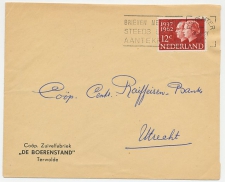 BRIEVEN
STEEDS
KANTE
1937
1962
12c
NEDERLAND
Coöp. Centr. Raiffeisen Bank
Utrecht
Coöp. Zuivelfabriek
"DE BOERENSTAND"
Terwolde